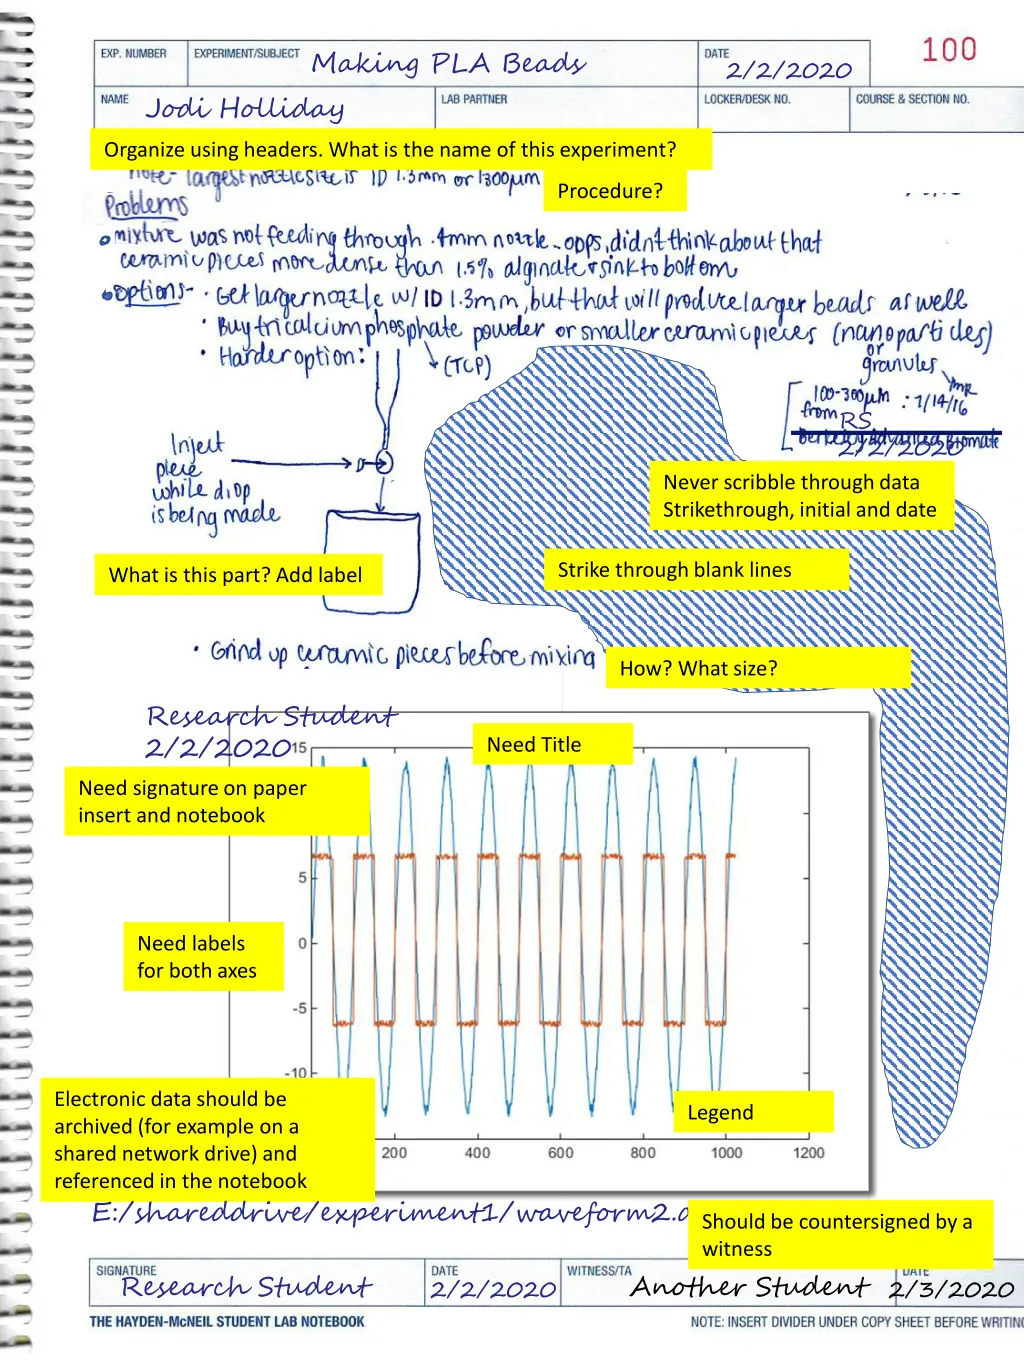 EXP. NUMBER EXPERIMENT/SUBJECT Making PLA Beads DATE 2/2/2020 100
NAME Jodi Holliday LAB PARTNER LOCKER/DESK NO. COURSE & SECTION NO.
Organize using headers. What is the name of this experiment?
note- largest nozzle size is ID 1.3mm or 1300µm
Procedure?
Problems
mixture was not feeding through .4mm nozzle - opps, didn't think about that
ceramic pieces more dense than 1.5% alginate & sink to bottom
options- · Get larger nozzle w/ ID 1.3mm, but that will produce larger beads as well
· Buy tricalcium phosphate powder or smaller ceramic pieces (nanoparticles)
· Harder option: (TCP) or
granules
100-300µm : 7/14/16
from RS
Berkeley Advanced Biomate
2/2/2020
Inject
piece
while drop
is being made
Never scribble through data
Strikethrough, initial and date
What is this part? Add label
Strike through blank lines
· Grind up ceramic pieces before mixing
How? What size?
Research Student
2/2/2020
Need Title
Need signature on paper
insert and notebook
15
5
0
-5
-10
Need labels
for both axes
Electronic data should be
archived (for example on a
shared network drive) and
referenced in the notebook
Legend
200 400 600 800 1000 1200
E:/shareddrive/experiment1/waveform2.d
Should be countersigned by a
witness
SIGNATURE DATE WITNESS/TA DATE
Research Student 2/2/2020 Another Student 2/3/2020
THE HAYDEN-McNEIL STUDENT LAB NOTEBOOK NOTE: INSERT DIVIDER UNDER COPY SHEET BEFORE WRITING